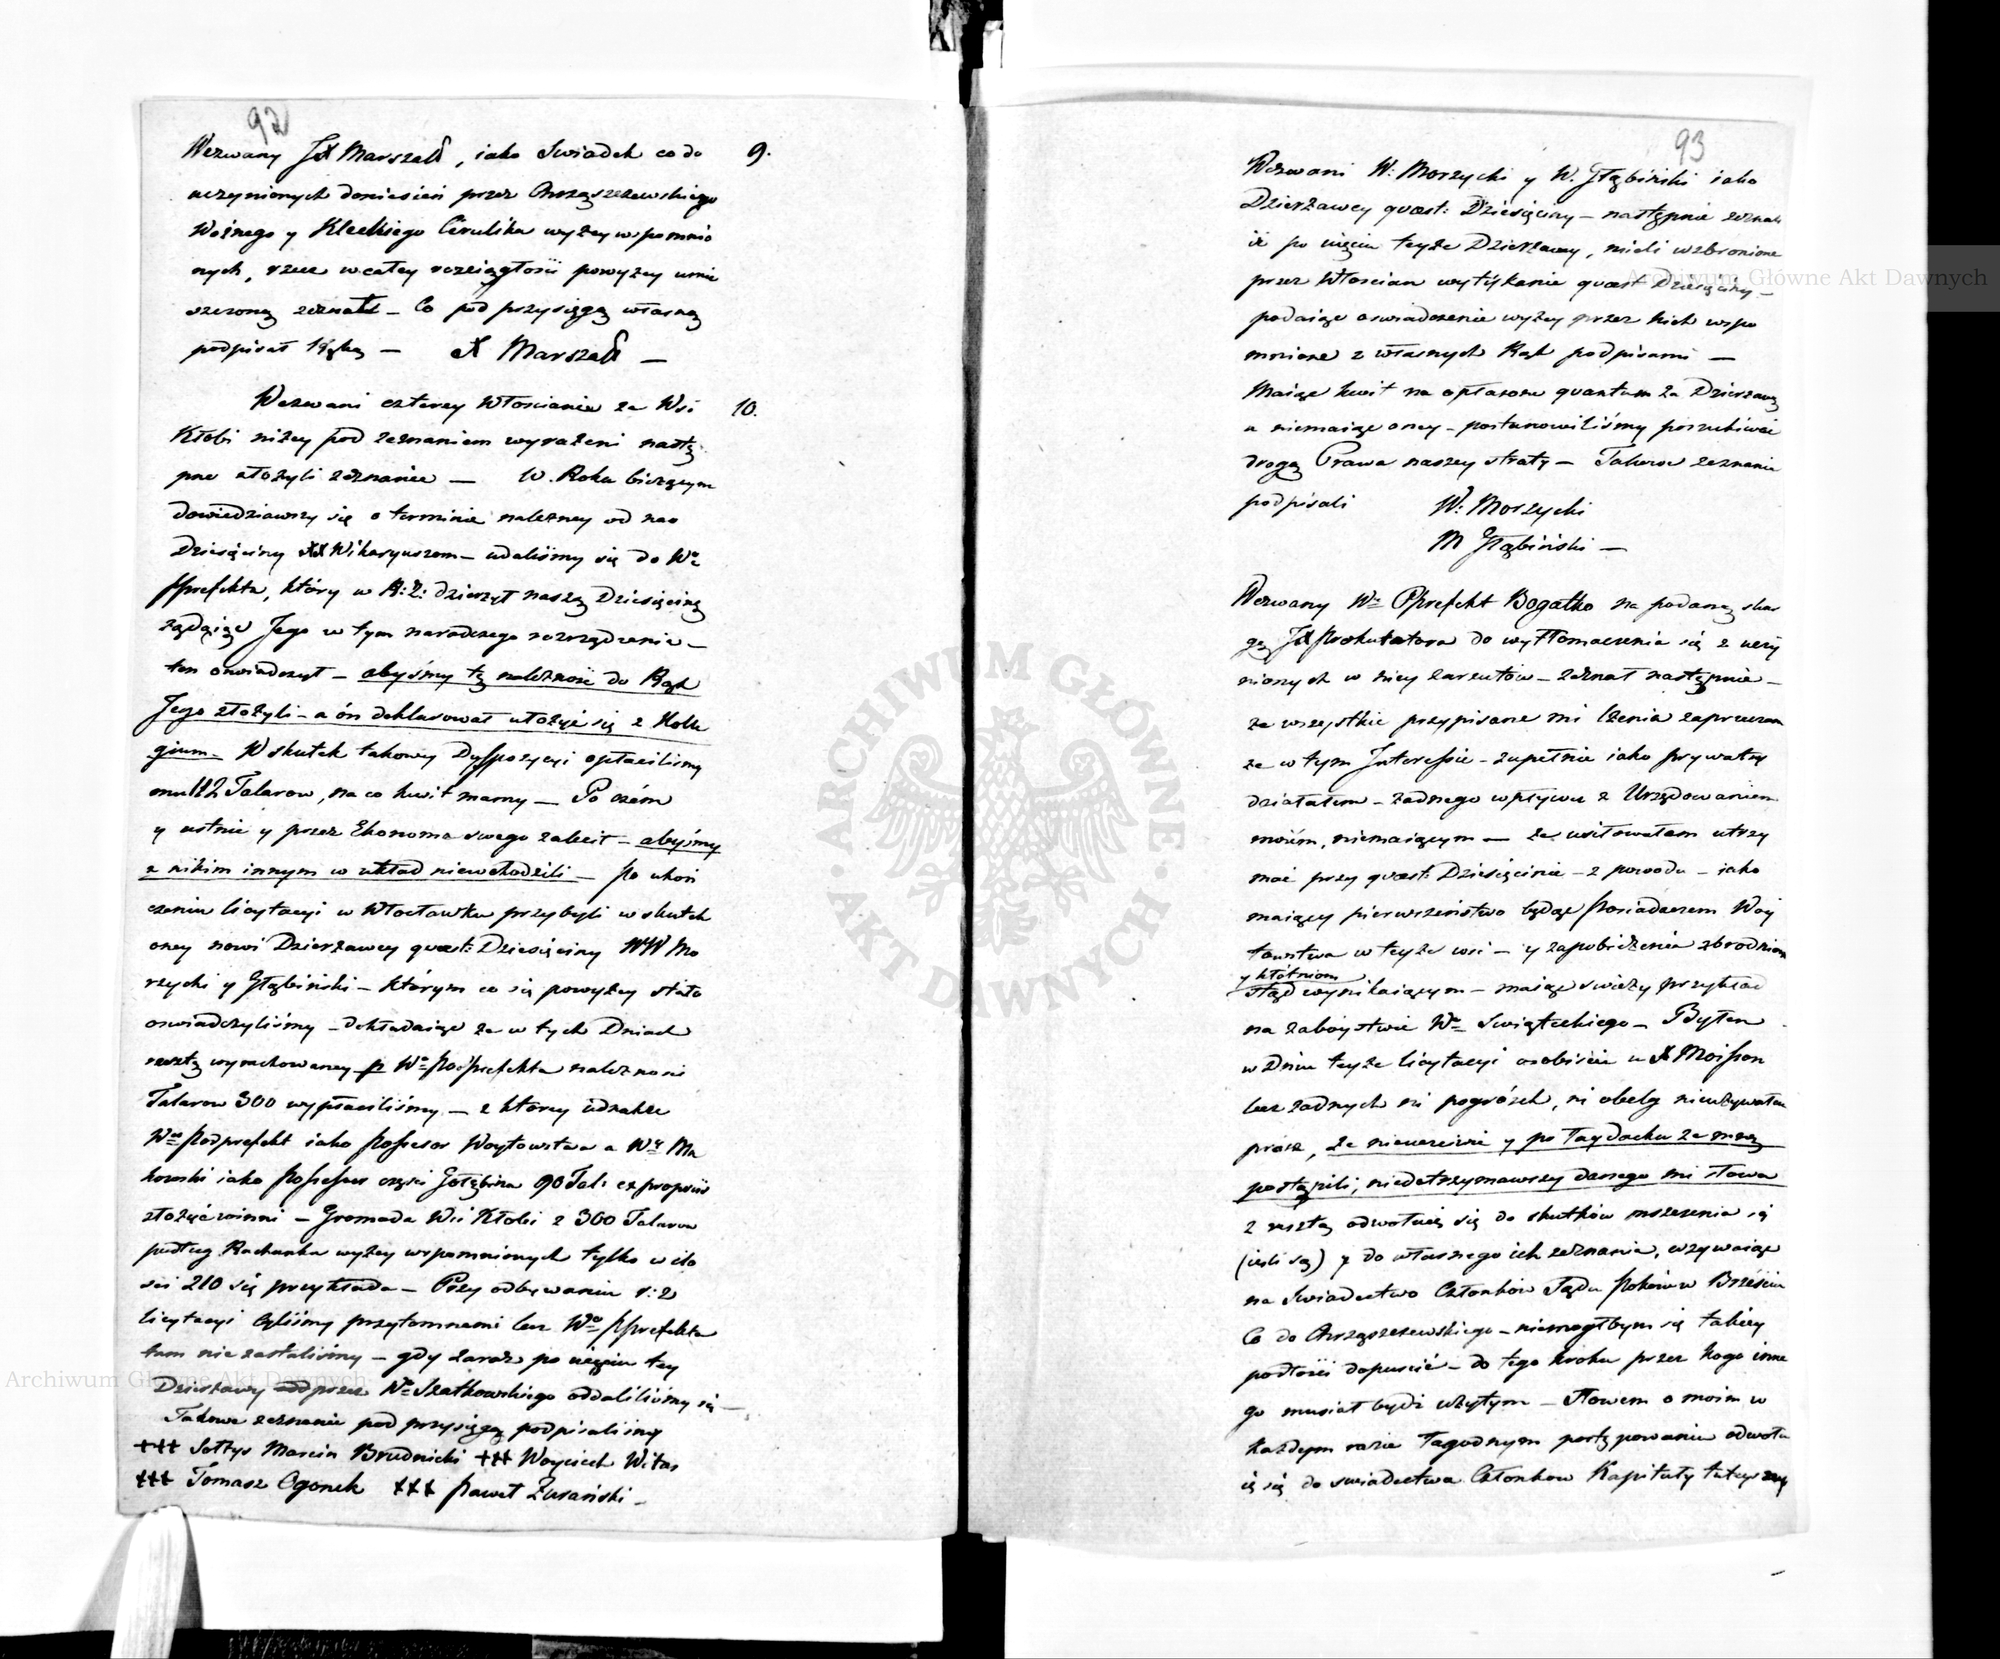 92
Wezwany JX Marszall, iako Swiadek co do 9.
uczynionych doniesień przez Chrząszczewskiego
Woźnego y Kleckiego Cérulika wyżey wspomnio
nych, rzecz w całey rozciągłości powyżey umie
szczoną zeznał – Co pod przysięgą własną
podpisał Ręką – X Marszall –
Wezwani czterey Włościanie ze Wsi 10.
Kłobi niżey pod zeznaniem wyrażeni nastę
pne złożyli zeznanie – W. Roku bieżącym
dowiedziawszy się o terminie należney od nas
Dziesięciny XX Wikaryuszom – udaliśmy się do Wo
Pprefekta, który w R: Z: dzierżył naszą Dziesięcinę
żądaiąc Jego w tym naradczego rozrządzenia –
ten oswiadczył – abyśmy tę należność do Rąk
Jego złożyli – a ón deklarował ułożyć się z Kolle
gium – W skutek takowey Dyspozycyi opłaciliśmy
mu 112 Talarow, na co kwit mamy – Po czém
y ustnie y przez Ekonoma swego zalecił – abyśmy
z nikim innym w układ niewchodzili – Po ukoń
czeniu licytacyi w Włocławku przybyli w skutek
oney nowi Dzierżawcy quaest: Dziesięciny WW Mo
rzycki y Głębiński – którym co się powyżey stało
oswiadczyliśmy – dokładaiąc że w tych Dniach
resztę wyrachowaney p Wo Podprefekta należności
Talarow 300 wypłaciliśmy – z ktorey udziałce
Wny Podprefekt iako Possesor Woytowstwa a Wny Ma
kowski iako Possessor części Gołębina 90 Tal: ex propriis
złożyć winni – Gromada Wsi Kłobi z 300 Talarow
podług Rachunku wyżey wspomnionych tylko w ilo
ści 210 się przykłada – Przy odbywaniu r: z
licytacyi byliśmy przytomnemi lecz Wo Pprefekta
tam nie zastaliśmy – gdy zaraz po wzięciu tey
Dzierżawy przez Wo Szatkowskiego oddaliliśmy się –
Takowe zeznanie pod przysięgą podpisaliśmy
+++ Sołtys Marcin Brudnicki +++ Woyciech Witas
+++ Tomasz Ogonek +++ Paweł Żurański –
93
Wezwani W: Morzycki y W. Głębiński iako
Dzierżawcy quaest: Dziesięciny – następnie zeznali
iż po wzięciu teyże Dzierżawy, mieli wzbronione
przez Włościan wytykanie quaest Dziesięciny –
podaiąc oswiadczenie wyżey przez nich wspo
mnione z własnych Rąk podpisami –
Maiąc kwit na opłacone quantum za Dzierzawę
a niemaiąc oney – postanowiliśmy poszukiwać
drogą Prawa naszey straty – Takowe zeznanie
podpisali W: Morzycki
M Głębiński –
Wezwany Wny Pprefekt Bogatko na podaną skar
gę JX Prokuratora do wytłomaczenia się z uczy
nionych w niey zarzutów – zeznał następnie –
że wszystkie przypisane mi czenia zaprzeczam
że w tym Interessie – zupełnie iako prywatny
działałem – żadnego wpływu z Urzędowaniem
moiém, niemaiącym – że usiłowałem utrzy
mać przy quaest: Dziesięcinie – z powodu – iako
maiący pierwszeństwo będąc Posiadaczem Woy
towstwa w teyże wsi – y zapobieżenia zbrodniom
y kłótniom
stąd wynikaiącym – maiąc swieży przykład
na zaboystwie Wo Swiąteckiego – Byłem
w Dniu teyże licytacyi osobiście u X Moisson
lecz żadnych ni pogrózek, ni obelg nieużywałem
prócz, że nieuczciwie y po łaydacku ze mną
postąpili, niedotrzymawszy danego mi słowa
z resztą odwołuię się do skutków mszczenia się
(ieśli są) y do własnego ich zeznania, wzywaiąc
na Swiadectwo Członków Sądu Pokoiu w Brześciu
Co do Chrząszczewskiego – niemogłbym się takiey
podłości dopuścić – do tego kroku przez kogo inne
go musiał bydź użytym – Słowem o moim w
każdym razie łagodnym postępowaniu odwołu
ię się do swiadectwa Członkow Kapituły tuteysz
Archiwum Główne Akt Dawnych
Archiwum Główne Akt Dawnych
ARCHIWUM GŁÓWNE
AKT DAWNYCH